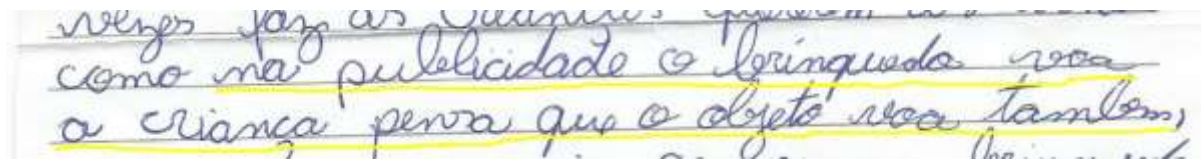 vezes faz as crianças querem
como na publicidade o brinquedo voa
a criança pensa que o objeto voa tambem,